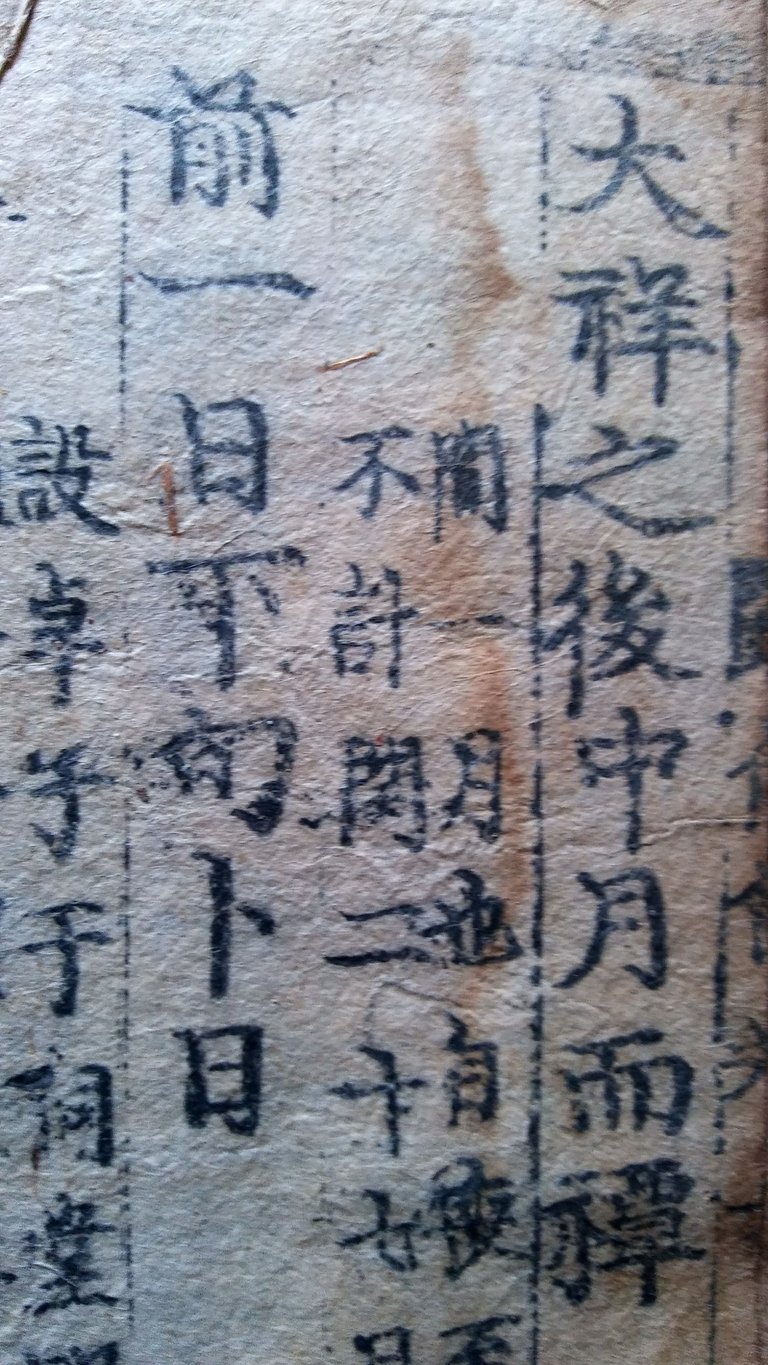 大祥之後中月而禫
間一月也自喪至
不計閏二十七
前一日下旬卜日
設卓子于祠堂門